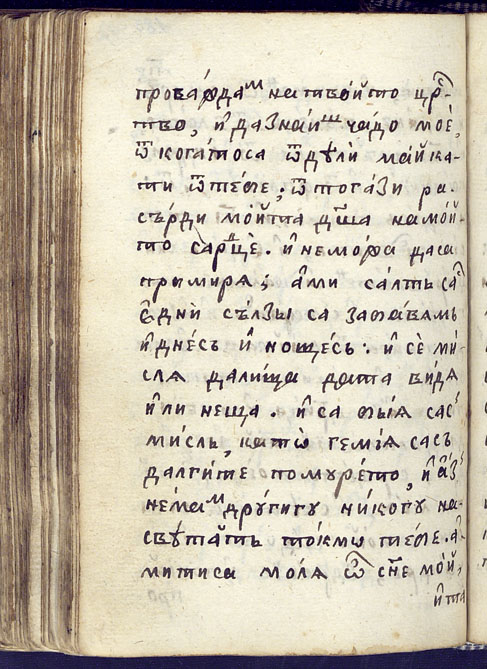 провождамъ на твойто цр҃-
тво, и да знаишъ чадо моѐ,
ѿ когатоса ѿдѣли майка-
ти ѿ тебе, ѿ тогази ра-
сърди мойта дш҃а на мой-
то сарце. и неможа даса
примиря; ами салтъ са
една сълзы са забавамъ
и днесъ и нощесъ: и се ми-
сля далища дата видя
или неща. и са бїя сас
мисль, като гемїя сасъ
далгите по муре́то, и азъ
немамъ другигу никогу на
свѣтатъ токмо тебе. а-
митиса моля ѽ сн҃е мой,
ита